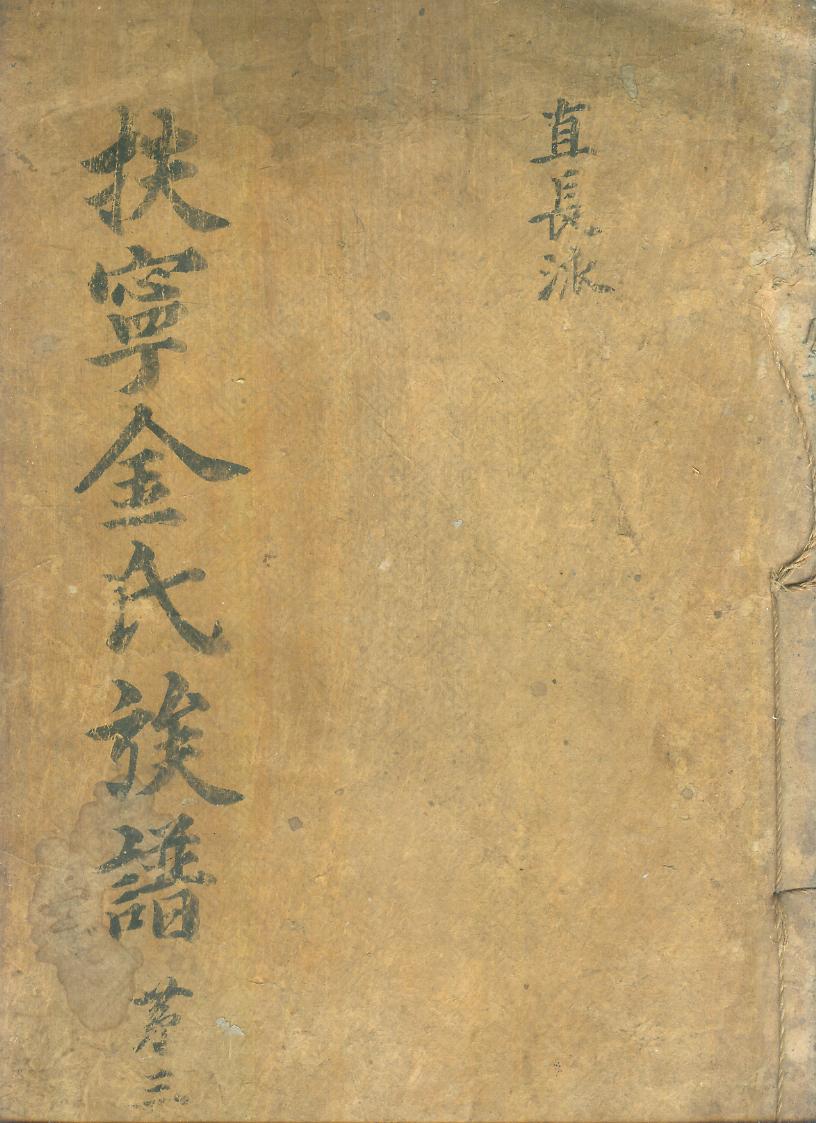 直長派
扶寧金氏族譜 卷三